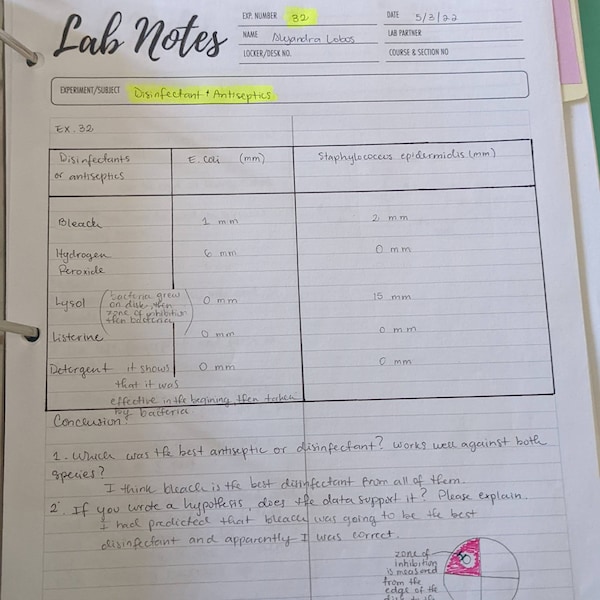 Lab Notes
EXP. NUMBER 32
DATE 5/3/22
NAME Alejandra Lobos
LAB PARTNER
LOCKER/DESK NO.
COURSE & SECTION NO
EXPERIMENT/SUBJECT Disinfectant & Antiseptics
Ex. 32
Disinfectants or antiseptics
E. Coli (mm)
Staphylococcus epidermidis (mm)
Bleach 1 mm 2 mm
Hydrogen Peroxide 6 mm 0 mm
Lysol 0 mm 15 mm
(bacteria grew
on disk, then
zone of inhibition
then bacteria)
Listerine 0 mm 0 mm
Detergent 0 mm 0 mm
it shows
that it was
effective in the begining then taken
by bacteria
Conclusion:
1. Which was the best antiseptic or disinfectant? Works well against both
species?
I think bleach is the best disinfectant from all of them.
2. If you wrote a hypothesis, does the data support it? Please explain.
I had predicted that bleach was going to be the best
disinfectant and apparently I was correct.
zone of
inhibition
is measured
from the
edge of the
disk to the